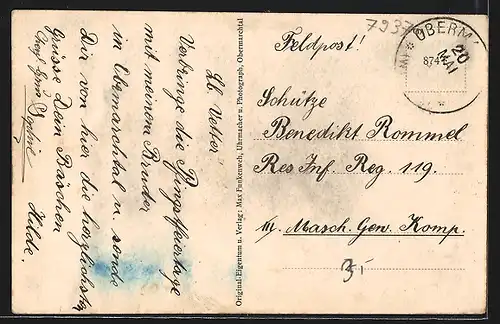 Lb. Vetter!
Verbringe die Pfingstfeiertage
mit meinem Bruder
in Obermarchtal u. sende
Dir von hier die herzlichsten
Grüsse Dein Bäschen
Hilde.
Original-Eigentum u. Verlag: Max Funkenweh, Uhrmacher u. Photograph, Obermarchtal
7937
OBERM
20
MAI
874
Feldpost!
Schütze
Benedikt Rommel
Res Inf. Reg. 119.
III. Masch. Gew. Komp.
3,-